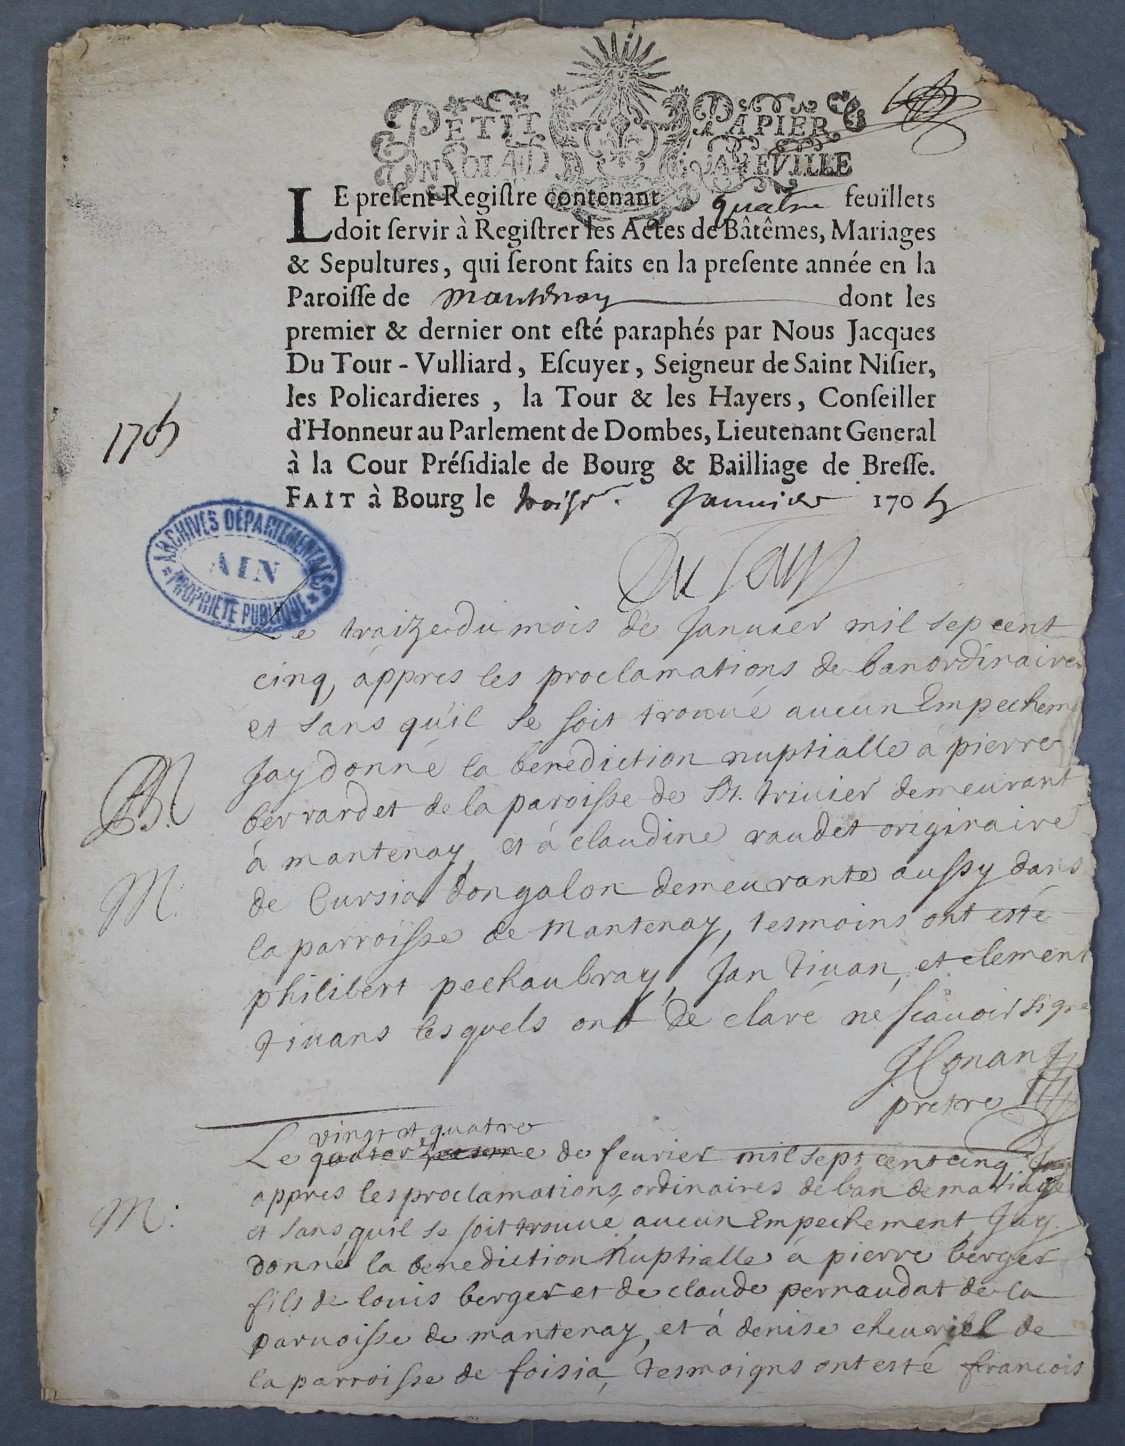 PETIT PAPIER
UN SOL 4 D LA FEVILLE
LE present Registre contenant quatre feuillets
doit servir à Registrer les Actes de Bâtêmes, Mariages
& Sepultures, qui seront faits en la presente année en la
Paroisse de mantenay dont les
premier & dernier ont esté paraphés par Nous Jacques
Du Tour-Vulliard, Escuyer, Seigneur de Saint Nisier,
les Policardieres, la Tour & les Hayers, Conseiller
d'Honneur au Parlement de Dombes, Lieutenant General
à la Cour Présidiale de Bourg & Bailliage de Bresse.
1705
FAIT à Bourg le Janvier 1705
ARCHIVES DÉPARTEMENTALES
AIN
PROPRIÉTÉ PUBLIQUE
Du Tour
Le traize du mois de Januier mil sep cent
cinq, appres les proclamations de ban ordinaires
et sans qu'il se soit trouué aucun Empechem
Jay donné la benediction nuptialle a pierre
berrardet de la paroisse de St. triuier demeurant
à mantenay, et à claudine raudet originaire
M.
de Cursia dongalon demeurante aussy dans
la parroisse de Mantenay, tesmoins ont esté
philibert pechaubray, Jan tiuan, et clement
tiuans lesquels ont de claré ne scauoir signe
JConand
pretre
vingt et quatre
Le de feurier mil sept cent cinq
appres les proclamations ordinaires de ban de mariage
M:
et sans quil se soit trouue aucun Empechement, Jay
donné la benediction Nuptialle à pierre berger
fils de louis berger et de claude pernaudat de la
parroisse de mantenay, et à denise cheuriel de
la parroisse de foisia, tesmoigns ont esté francois